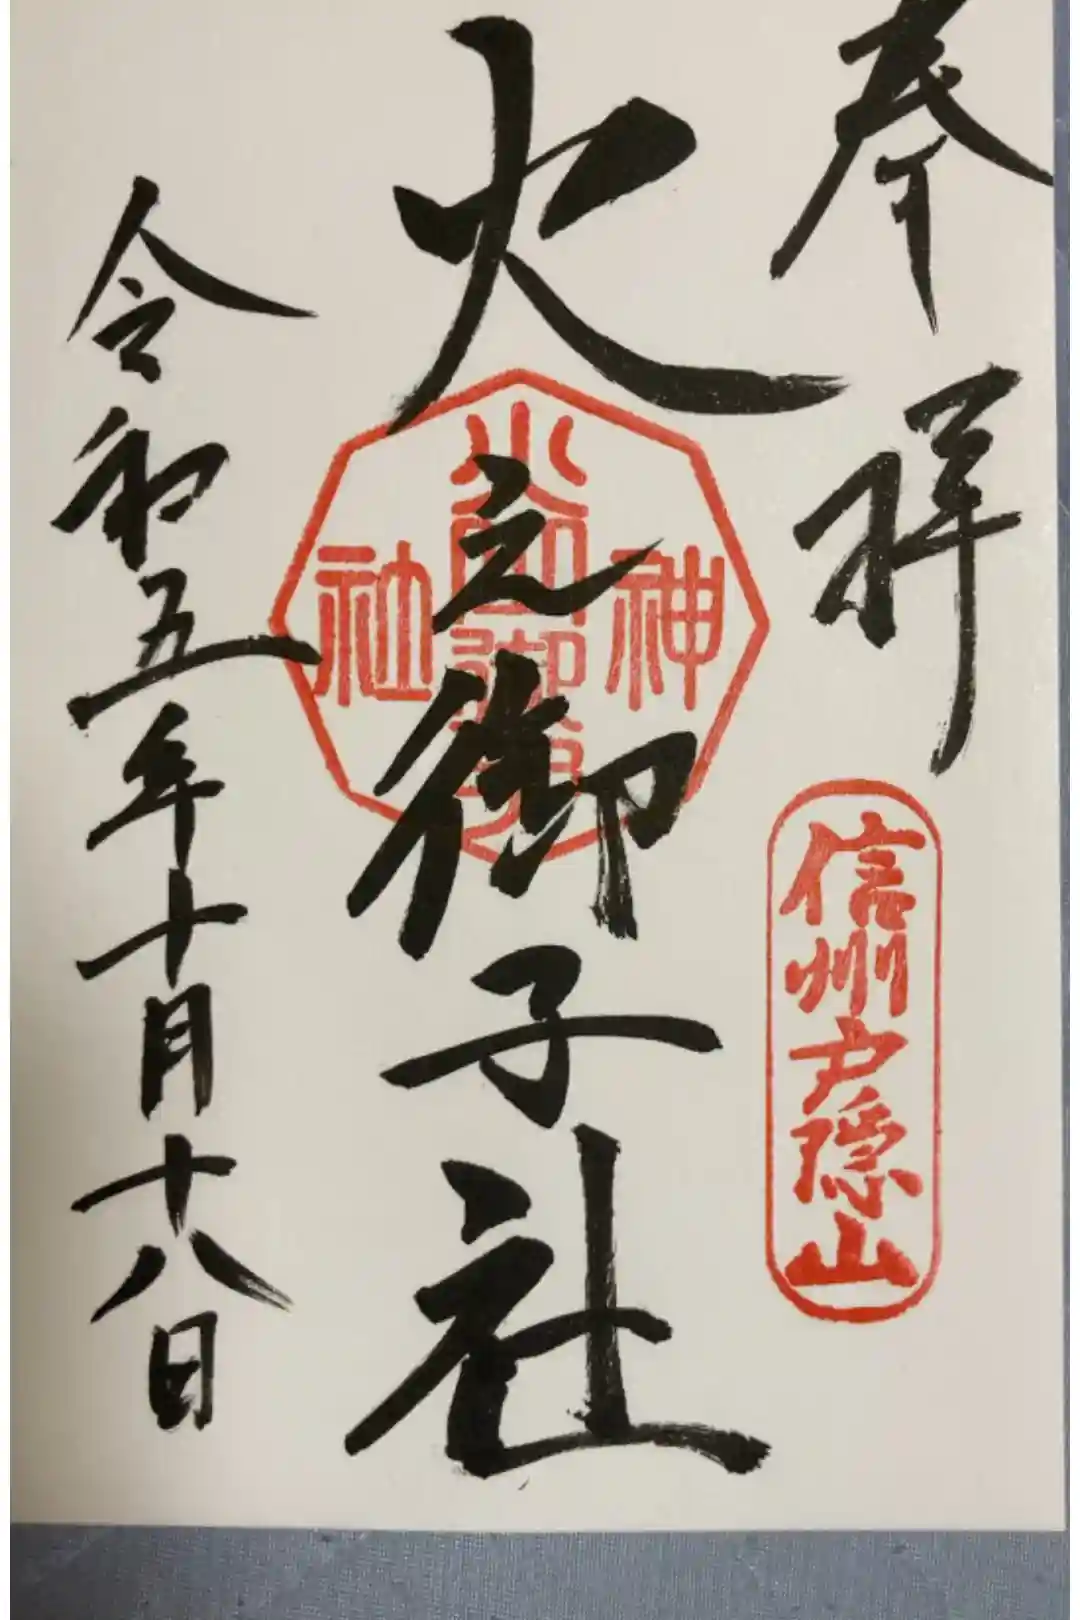 奉拝
信州戸隠山
火之御子社
神社
令和五年十月十八日